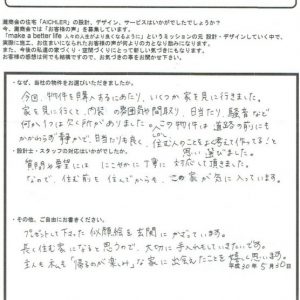 今、潮商会の住宅「AICHLER」の設計、デザイン、サービスはいかがでしたでしょうか？
潮商会では「お客様の声」を募集しています。
「make a better life 人々の人生がより良くなるように」というミッションの元 設計・デザインしていく中で、
実際に施工、お住まいになられたお客様の声が何よりの力となり励みになります。
また、今後の私達の家づくり・空間づくりにとって新しい気づきになることもあります。
お客様の感想は何でも結構ですので、お気づきの事をお聞かせ下さい。
・なぜ、当社の物件をお選びいただきましたか。
今回、物件を購入するにあたり、いくつか家を見に行きました。
家を見に行くて、内装の雰囲気や間取り、日当たり、騒音など
何か1つは欠ヶ所がありました。この物件は道路の前にも
かかわらず静かで、日当たりも良く、住む人のことをよく考えて作ってると
思い選びました。
・設計士・スタッフの対応はいかがでしたか。
質問や要望には にこやかに丁寧に対応して頂きました。
なので、住む前も住んでからも、この家が気に入っています。
・その他、ご自由にお書きください。
プレゼントして下さった似顔絵を玄関にかざっています。
長く住む家になると思うので、大切に手入れもしていきたいです。
主人も私も「帰るのが楽しい」な家に出会えたことを嬉しく思います。
平成30年5月30日